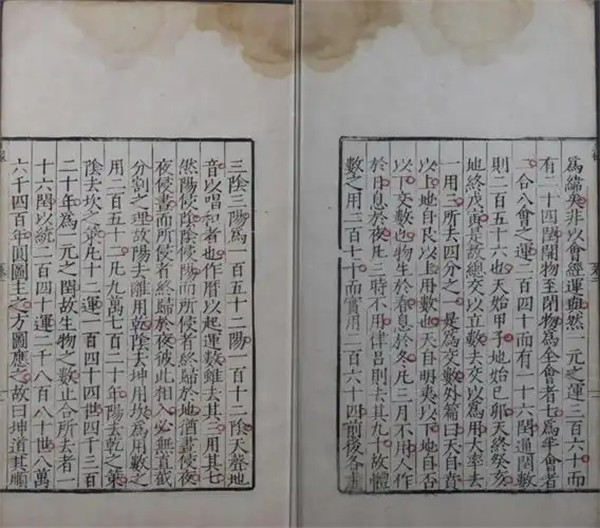 為緯矣非以會經運與然一元之運三百六十而
有二十四閏開物至閉物為全會者七為半會者
二合八會之運二百四十而有一十六閏通閏數
則二百五十六也天始甲子地始己卯天終癸亥
地終戊寅是故總交以立數去交以為用大率去
一用三所去四分之一是為交數外篇曰天自賁
以上地自艮以上用數也天自明夷以下地自否
以下交數也物生於春息於冬凡三月不用人作
於日息於夜凡三時不用律呂則去其九十故體
數之用二百七十而實用二百六十四前後各去
三陰三陽為一百五十二陽一百十二陰天聲地
音以唱和者也作曆以起運數雖去其三用其七
然陽侵陰陰侵陽而所侵者終歸於地猶晝侵夜
夜侵晝而所侵者終歸於夜彼此相入必無直截
分割之理故陽去離用乾陰去坤用坎為用數之
用二百五十二凡九萬七百二十年陽去乾之策
陰去坎之策凡十二運一百四十四世四千三百
二十年為一元之閏故生物之數止合所去者一
十六閏以統二百四十運二千八百八十世八萬
六千四百年圓圖主之方圖應之故曰坤道其順